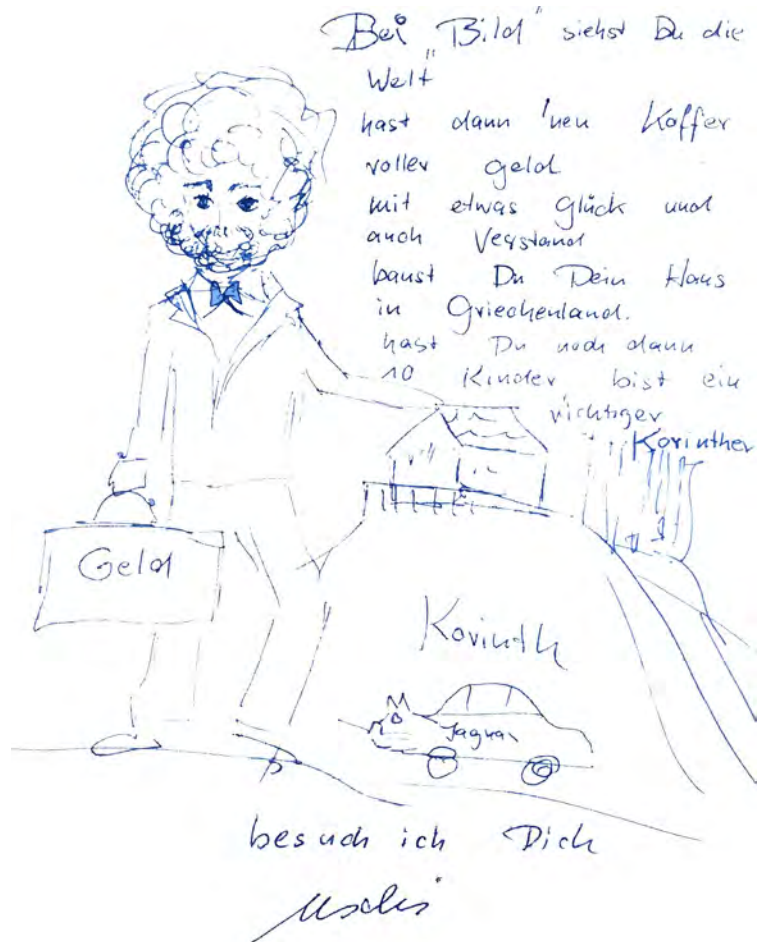 Bei "Bild" siehst Du die
Welt
hast dann 'nen Koffer
voller Geld
mit etwas Glück und
auch Verstand
baust Du Dein Haus
in Griechenland.
hast Du noch dann
10 Kinder bist ein
richtiger
Korinther
Geld
Korinth
Jaguar
besuch ich Dich
Uschi